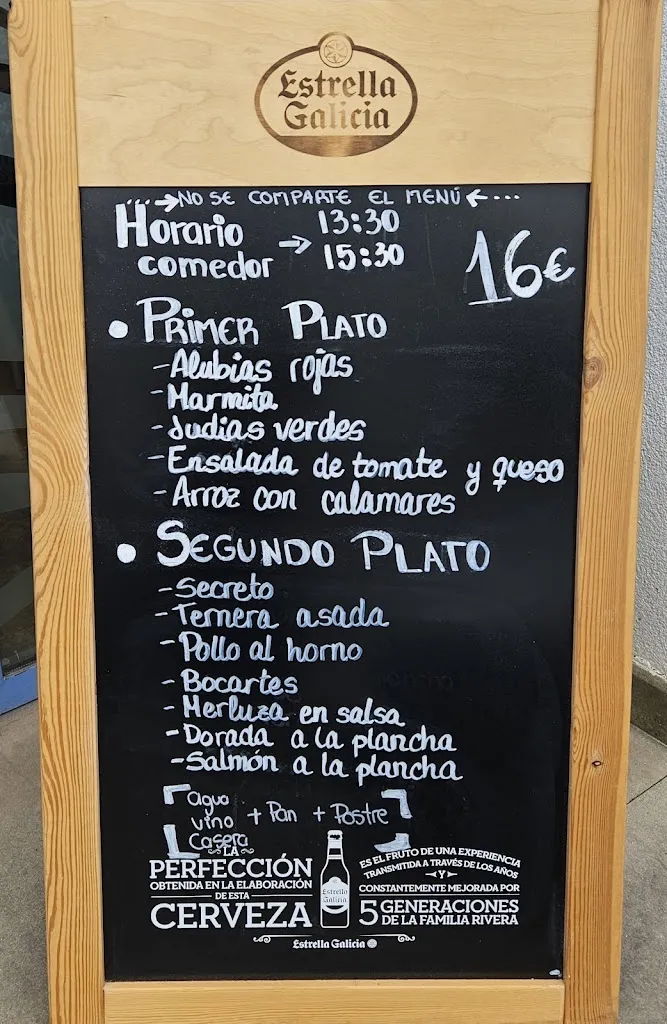 Estrella
Galicia
NO SE COMPARTE EL MENÚ
Horario
comedor
13:30
15:30
16€
PRIMER PLATO
-Alubias rojas
-Marmita
-Judias verdes
-Ensalada de tomate y queso
-Arroz con calamares
SEGUNDO PLATO
-Secreto
-Ternera asada
-Pollo al horno
-Bocartes
-Merluza en salsa
-Dorada a la plancha
-Salmón a la plancha
Agua
vino
Casera
+ Pan + Postre
LA
PERFECCIÓN
OBTENIDA EN LA ELABORACIÓN
DE ESTA
CERVEZA
Estrella
Galicia
ES EL FRUTO DE UNA EXPERIENCIA
TRANSMITIDA A TRAVÉS DE LOS AÑOS
Y
CONSTANTEMENTE MEJORADA POR
5 GENERACIONES
DE LA FAMILIA RIVERA
Estrella Galicia